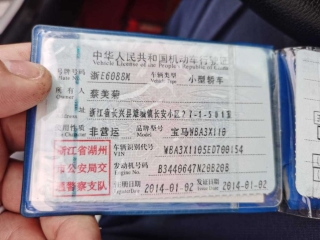 中华人民共和国机动车行驶证
Vehicle License of the People's Republic of China
号牌号码 浙E6088M 车辆类型 小型轿车
所有人 蔡美菊
Owner
浙江省长兴县雉城镇长安小区27-1-501室
使用性质 非营运 品牌型号 宝马WBA3X110
浙江省湖州
市公安局交
通警察支队
车辆识别代号 WBA3X1105ED700154
VIN
发动机号码 B3440647N20B20B
Engine No.
注册日期 2014-01-02 发证日期 2014-01-02